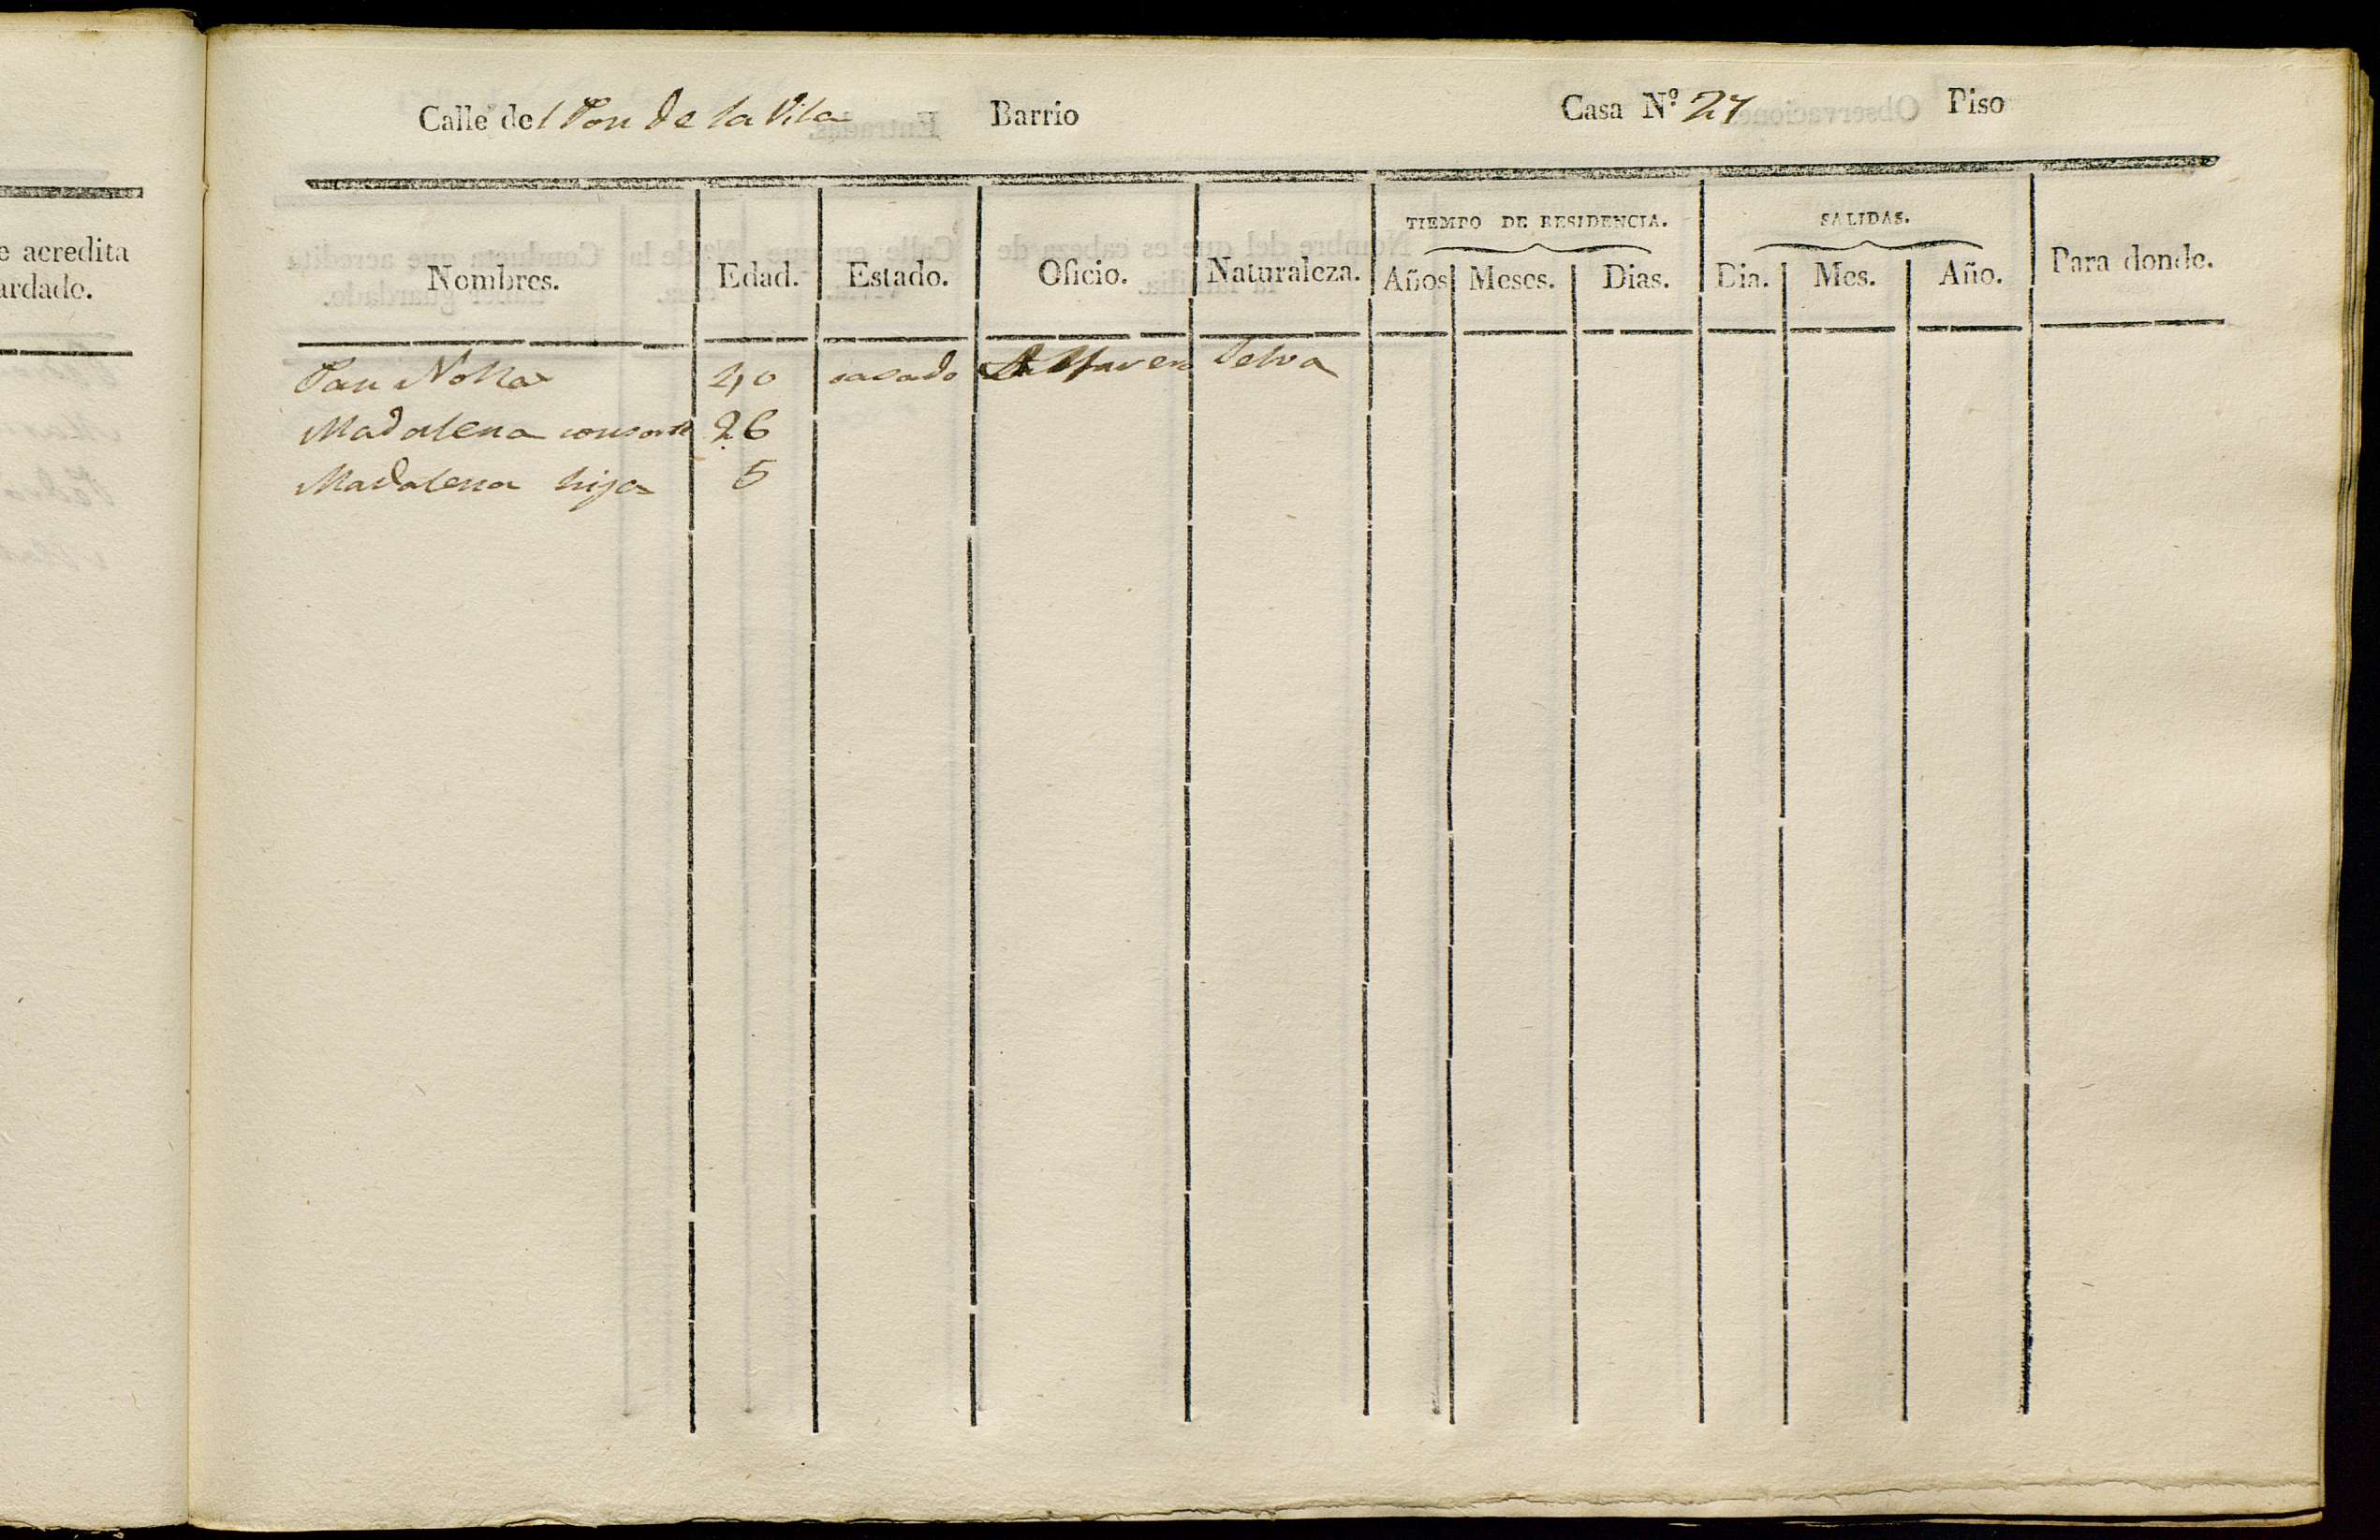 e acredita
ardado.
Calle del Pou de la Vila Barrio Casa Nº 27 Piso
TIEMPO DE RESIDENCIA. SALIDAS.
Nombres. Edad. Estado. Oficio. Naturaleza. Años Meses. Dias. Dia. Mes. Año. Para donde.
Pau Nolla 40 casado Selva
Madalena consorte 26
Madalena hija 5